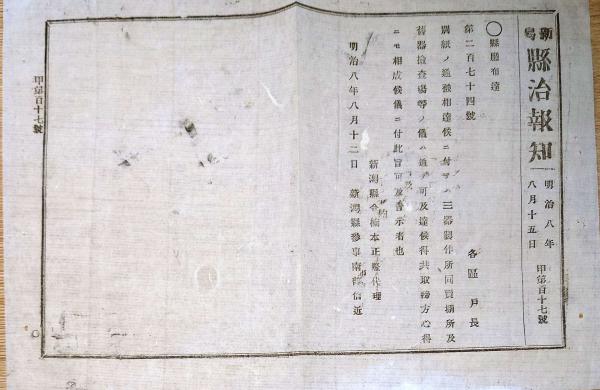 新潟縣治報知
明治八年
八月十五日
甲第百十七號
〇縣廳布達
第二百七十四號 各區戸長
別紙ノ通被相達候ニ付テハ三器製作所同賣捌所及
舊器檢査場等ノ儀ハ追テ可及達候得共取締方心得
ニモ相成候儀ニ付此旨可及告示者也
新潟縣令楠本正隆代理
明治八年八月十二日 新潟縣參事南部信近
甲第百十七號